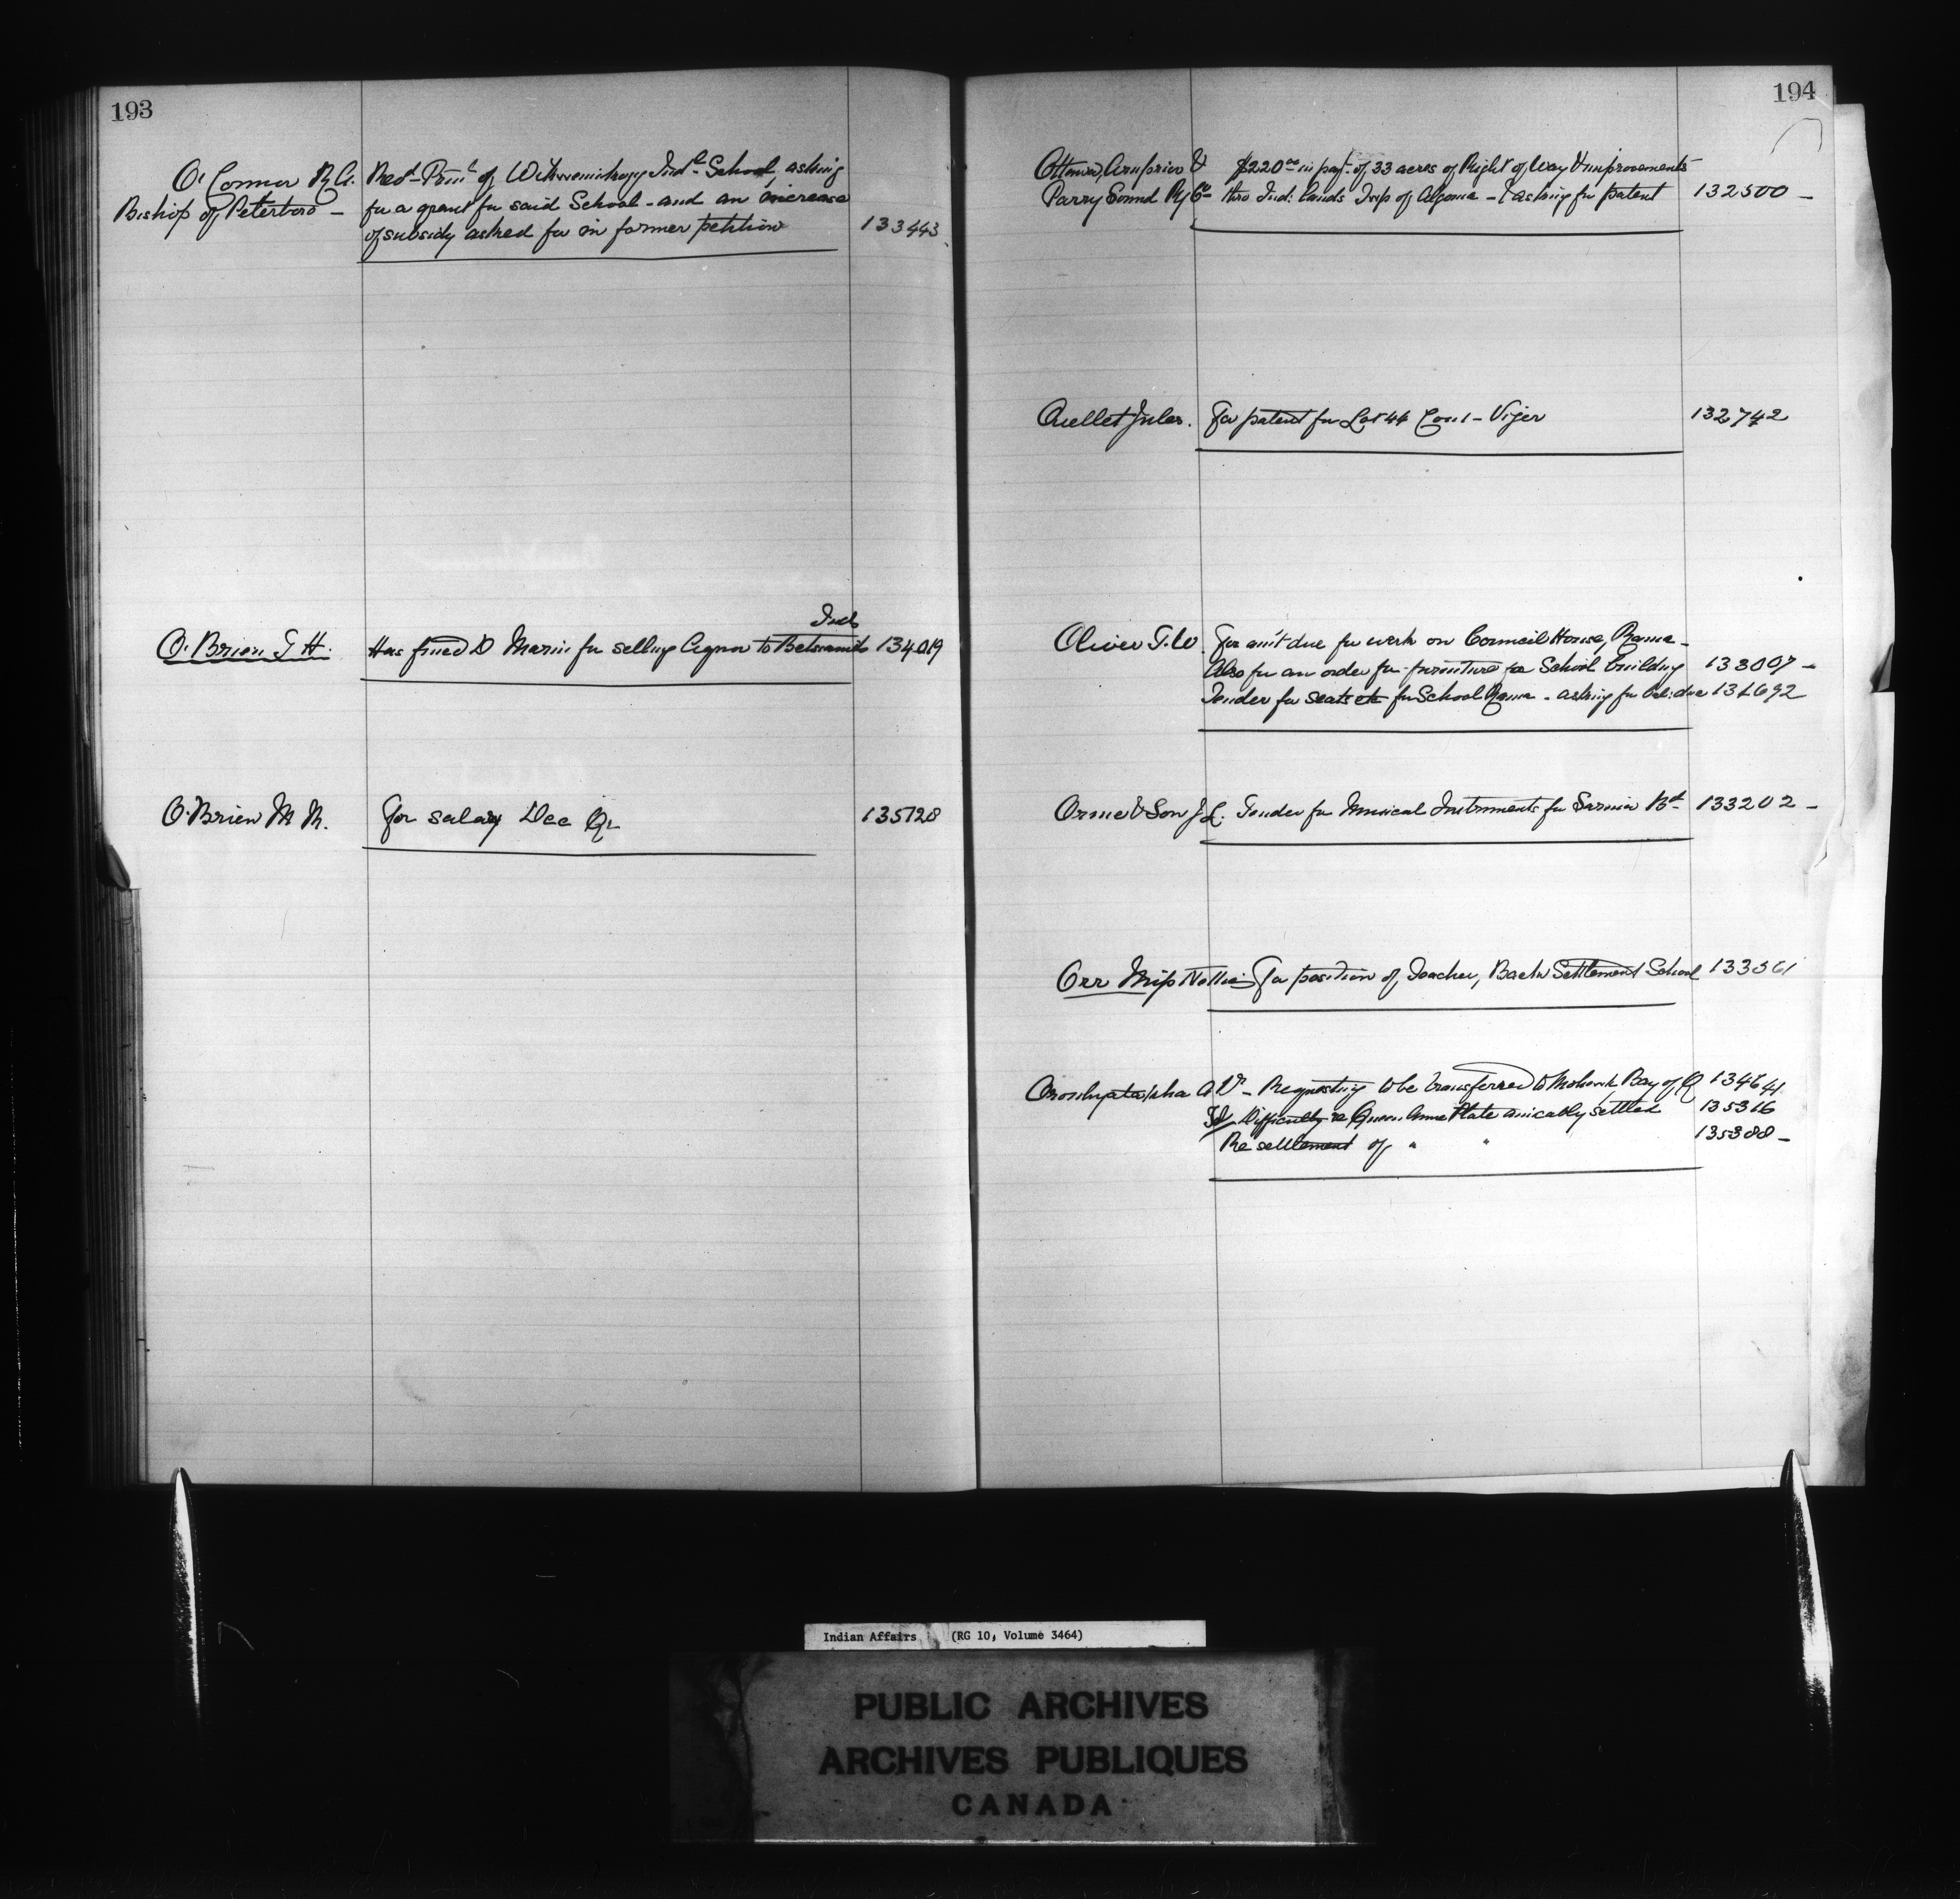 193
O'Connor R.A.
Bishop of Peterboro —
Red. Prin'l of Wikwemikong Ind'l School, asking
for a grant for said School - and an increase
of subsidy asked for in former petition
133443
O'Brien T H.
Inds
Has fined D Marin for selling liquor to Betsiamits 134019
O'Brien M M.
For salary Dec Qr
135128
194
Ottawa, Arnprior &
Parry Sound Ry Co
$220.00 in pay't of 33 acres of Right of Way & improvements
thro Ind: lands Twp of Algoma - & asking for patent
132500 —
Ouellet Jules.
For patent for Lot 44 Con 1 - Viger
132742
Oliver T. W.
For am't due for work on Council House, Rama -
Also for an order for furniture for School building 133007 -
Tender for seats etc for School Rama - asking for bal: due
Orme & Son J L.
Tender for Musical Instruments for Sarnia Bd 133202 -
Orr Miss Nellie
For position of Teacher, Back Settlement School 133561
Oronhyatekha Dr -
Requesting to be transferred to Mohawk Bay of Q 134641
Difficulty re Queen Anne Plate amicably settled 135316
Re settlement of " " 135388 -
Indian Affairs (RG 10, Volume 3464)
PUBLIC ARCHIVES
ARCHIVES PUBLIQUES
CANADA